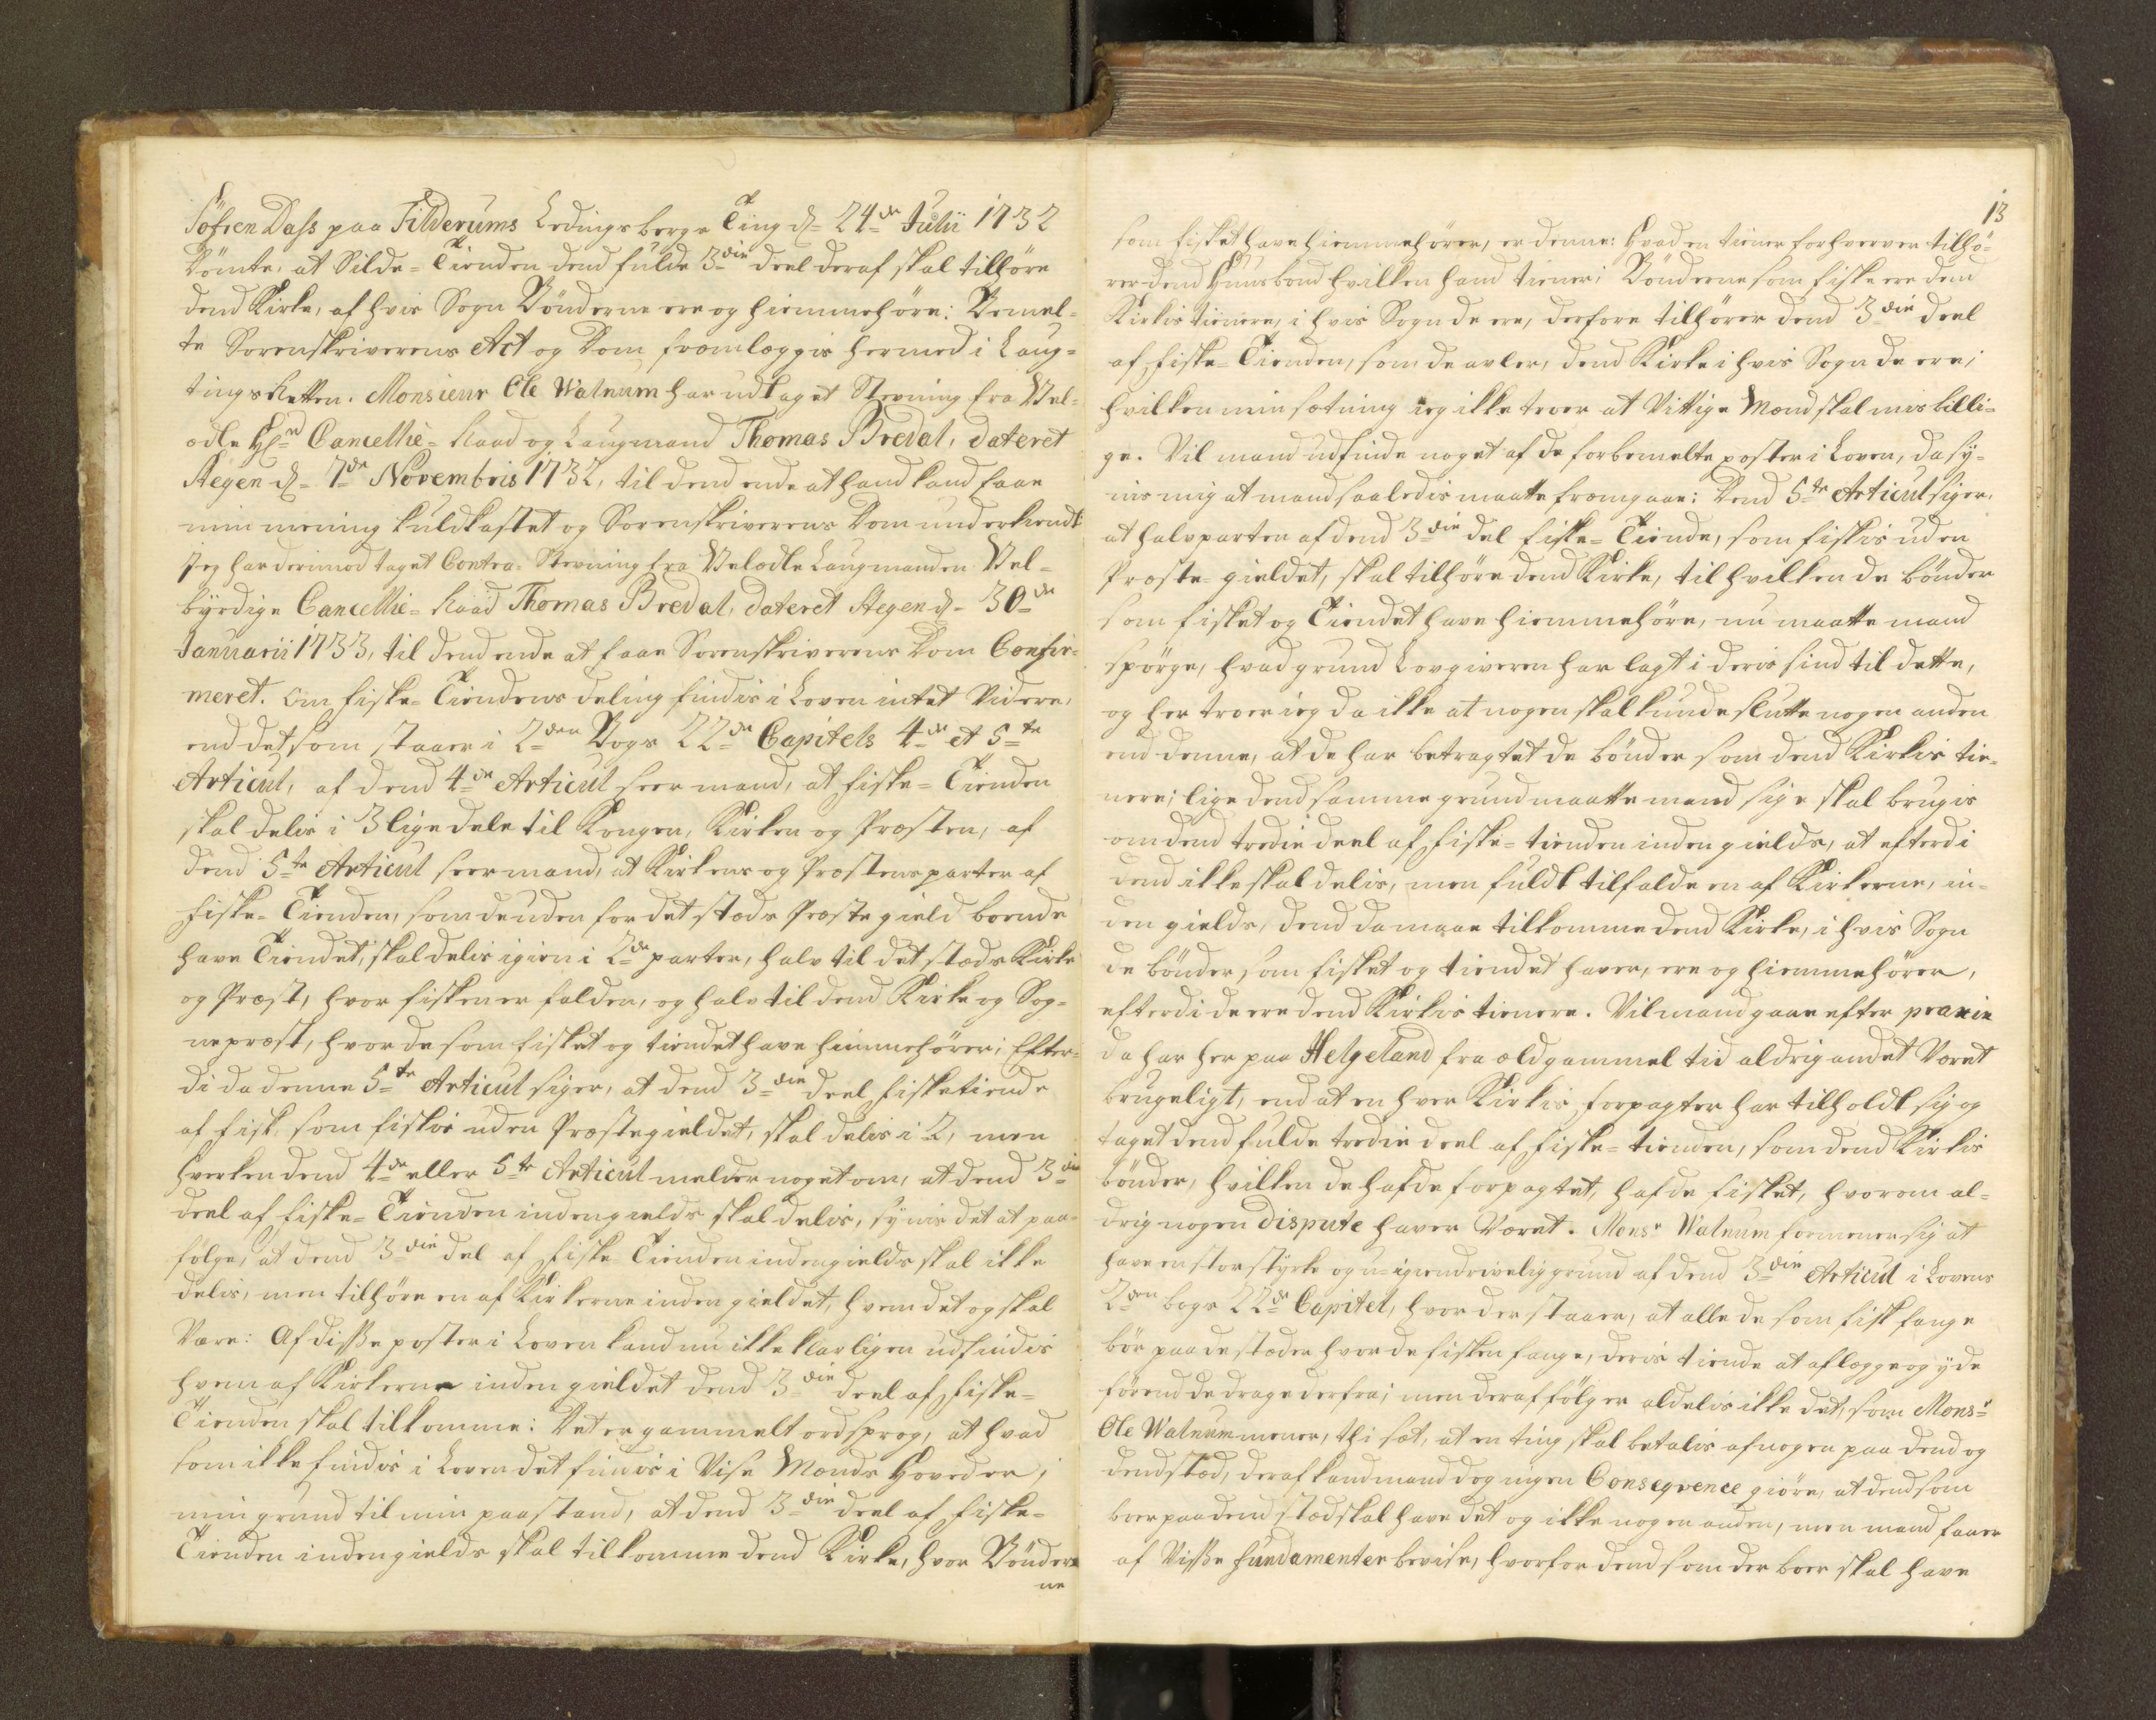 Söfren Dass paa Tilderums Ledingsberge Ting d. 24de Julii 1732
Dömte, at Silde-Tienden dend fulde 3die deel deraf skal tilhöre
dend Kirke, af hvis Sogn Bönderne ere og hiemmehöre: Bemel-
te Sorenskriverens Act og Dom fremlæggis hermed i Laug-
tings Retten. Monsieur Ole Walnum har udtaget Stevning fra Vel-
ædle Hr Cancellie-Raad og Laugmand Thomas Bredal, dateret
Stegen d. 7de Novembris 1732, til dend ende at hand kand faae
min mening kuldkastet og Sorenskriverens Dom underkiendt
Jeg har derimod taget Contra-Stevning fra Velædle Laugmanden Vel-
byrdige Cancellie-Raad Thomas Bredal, dateret Stegen d. 30de
Januarii 1733, til dend ende at faae Sorenskriverens Dom Confir-
meret. Om fiske-Tiendens deling findis i Loven intet Videre,
end det som staaer i 2den Bogs 22de Capitels 4de et 5te
Articul, af dend 4de Articul seer mand, at fiske-Tienden
skal delis i 3 lige dele til Kongen, Kirken og Præsten, af
dend 5te Articul seer mand, at Kirkens og Præstens parter af
fiske-Tienden, som de uden for det stæds Præstegield boende
have Tiendet, skal delis igien i 2de parter, halv til det stæds Kirke
og Præst, hvor fisken er falden, og halv til dend Kirke og Sog-
nepræst, hvor de som fisket og tiendet have hiemmehörer; Efter-
di da denne 5te Articul siger, at dend 3die deel fisketiende
af fisk, som fiskis uden Præstegieldet, skal delis i 2, men
hverken dend 4de eller 5te Articul melder noget om, at dend 3die
deel af fiske-Tienden inden gields skal delis, synis det at paa-
følge, at dend 3die del af fiske Tienden inden gields skal ikke
delis, men tilhöre en af Kirkerne inden gieldet, hvem det og skal
Være: Af disse poster i Loven kand nu ikke klarligen udfindis
hvem af Kirkerne inden gieldet dend 3die deel af fiske-
Tienden skal tilkomme: Det er gammelt ordsprog, at hvad
som ikke findis i Loven det findis i Vise Mænds Hoveder;
min grund til min paastand, at dend 3die deel af fiske-
Tienden inden gields skal tilkomme dend Kirke, hvor Bönder-
ne
13
som fisket have hiemmehörer, er denne: Hvad en tiener forhverver tilhö-
rer dend Huusbond hvilken hand tiener; Bönderne som fiske ere dend
Kirkis tienere, i hvis Sogn de ere, derfore tilhører dend 3die deel
af fiske-Tienden, som de avler, dend Kirke i hvis Sogn de ere;
hvilken min sætning jeg ikke troer at Vittige Mænd skal misbilli-
ge. Vil mand udfinde noget af de forbemelte poster i Loven, da sy-
nis mig at mand saaledis maatte fremgaae: Dend 5te Articul siger,
at halvparten af dend 3die del fiske-Tiende, som fiskis uden
Præste-gieldet, skal tilhöre dend Kirke, til hvilken de bönder
som fisket og Tiendet have hiemmehöre, nu maatte mand
spörge, hvad grund Lovgiveren har lagt i deris sind til dette,
og her troer jeg da ikke at nogen skal kunde slutte nogen anden
end denne, at de har betragtet de bönder som dend Kirkis tie-
nere; lige dend samme grund maatte mand sige skal brugis
om dend tredie deel af fiske-tienden inden gields, at efterdi
dend ikke skal delis, men fuldt tilfalde en af Kirkerne, in-
den gields, dend da maae tilkomme dend Kirke, i hvis Sogn
de bönder som fisket og tiendet haver, ere og hiemmehörer,
efterdi de ere dend Kirkis tienere. Vil mand gaae efter praxin
da har her paa Helgeland fra ældgammel tid aldrig andet Været
brugeligt, end at en hver Kirkis forpagter har tilholdt sig og
taget dend fulde tredie deel af fiske-tienden, som dend Kirkis
bönder, hvilken de hafde forpagtet, hafde fisket, hvorom al-
drig nogen dispute haver Været. Monsr Walnum formener sig at
have en stor styrke og u-igiendrivelig grund af dend 3die Articul i Lovens
2den bogs 22de Capitel, hvor der staaer, at alle de som fisk fange
bör paa de stæder hvor de fisken fange, deris tiende at aflægge og yde
förend de drage derfra; men deraf fölger aldelis ikke det, som Monsr
Ole Walnum mener, thi sæt, at en ting skal betalis af nogen paa dend og
dend stæd, deraf kand mand dog ingen Conseqvence giöre, at dend som
boer paa dend stæd skal have det og ikke nogen anden, men mand faaer
af Visse fundamenter bevise, hvorfor dend som der boer skal have